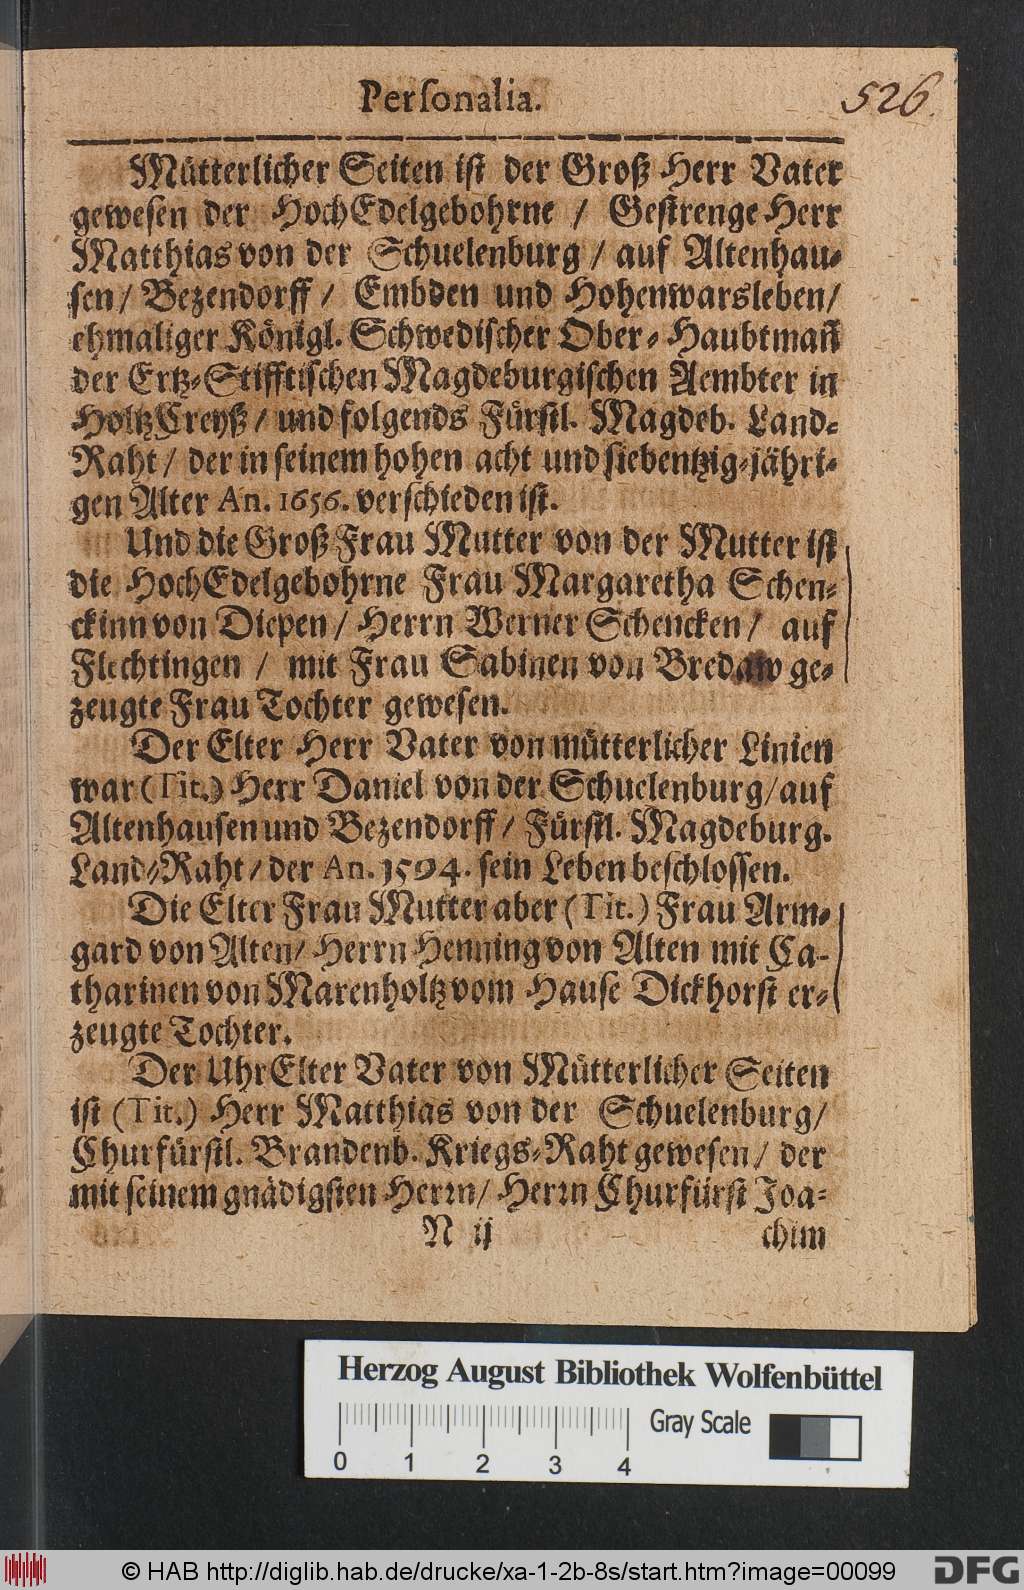 Personalia.
526.
Mütterlicher Seiten ist der Groß Herr Vater
gewesen der HochEdelgebohrne / Gestrenge Herr
Matthias von der Schuelenburg / auf Altenhau-
sen / Bezendorff / Embden und Hohenwarsleben /
ehmaliger Königl. Schwedischer Ober-Haubtmañ
der Ertz-Stifftischen Magdeburgischen Aembter in
HoltzCreyß / und folgends Fürstl. Magdeb. Land-
Raht / der in seinem hohen acht und siebentzig-jähri-
gen Alter An. 1656. verschieden ist.
Und die Groß Frau Mutter von der Mutter ist
die HochEdelgebohrne Frau Margaretha Schen-
ckinn von Diepen / Herrn Werner Schencken / auf
Flechtingen / mit Frau Sabinen von Bredaw ge-
zeugte Frau Tochter gewesen.
Der Elter Herr Vater von mütterlicher Linien
war (Tit.) Herr Daniel von der Schuelenburg / auf
Altenhausen und Bezendorff / Fürstl. Magdeburg.
Land-Raht / der An. 1594. sein Leben beschlossen.
Die Elter Frau Mutter aber (Tit.) Frau Arm-
gard von Alten / Herrn Henning von Alten mit Ca-
tharinen von Marenholtz vom Hause Dickhorst er-
zeugte Tochter.
Der UhrElter Vater von Mütterlicher Seiten
ist (Tit.) Herr Matthias von der Schuelenburg /
Churfürstl. Brandenb. Kriegs-Raht gewesen / der
mit seinem gnädigsten Herrn / Herrn Churfürst Joa-
N ij
chim
Herzog August Bibliothek Wolfenbüttel
0 1 2 3 4
Gray Scale
© HAB http://diglib.hab.de/drucke/xa-1-2b-8s/start.htm?image=00099
DFG